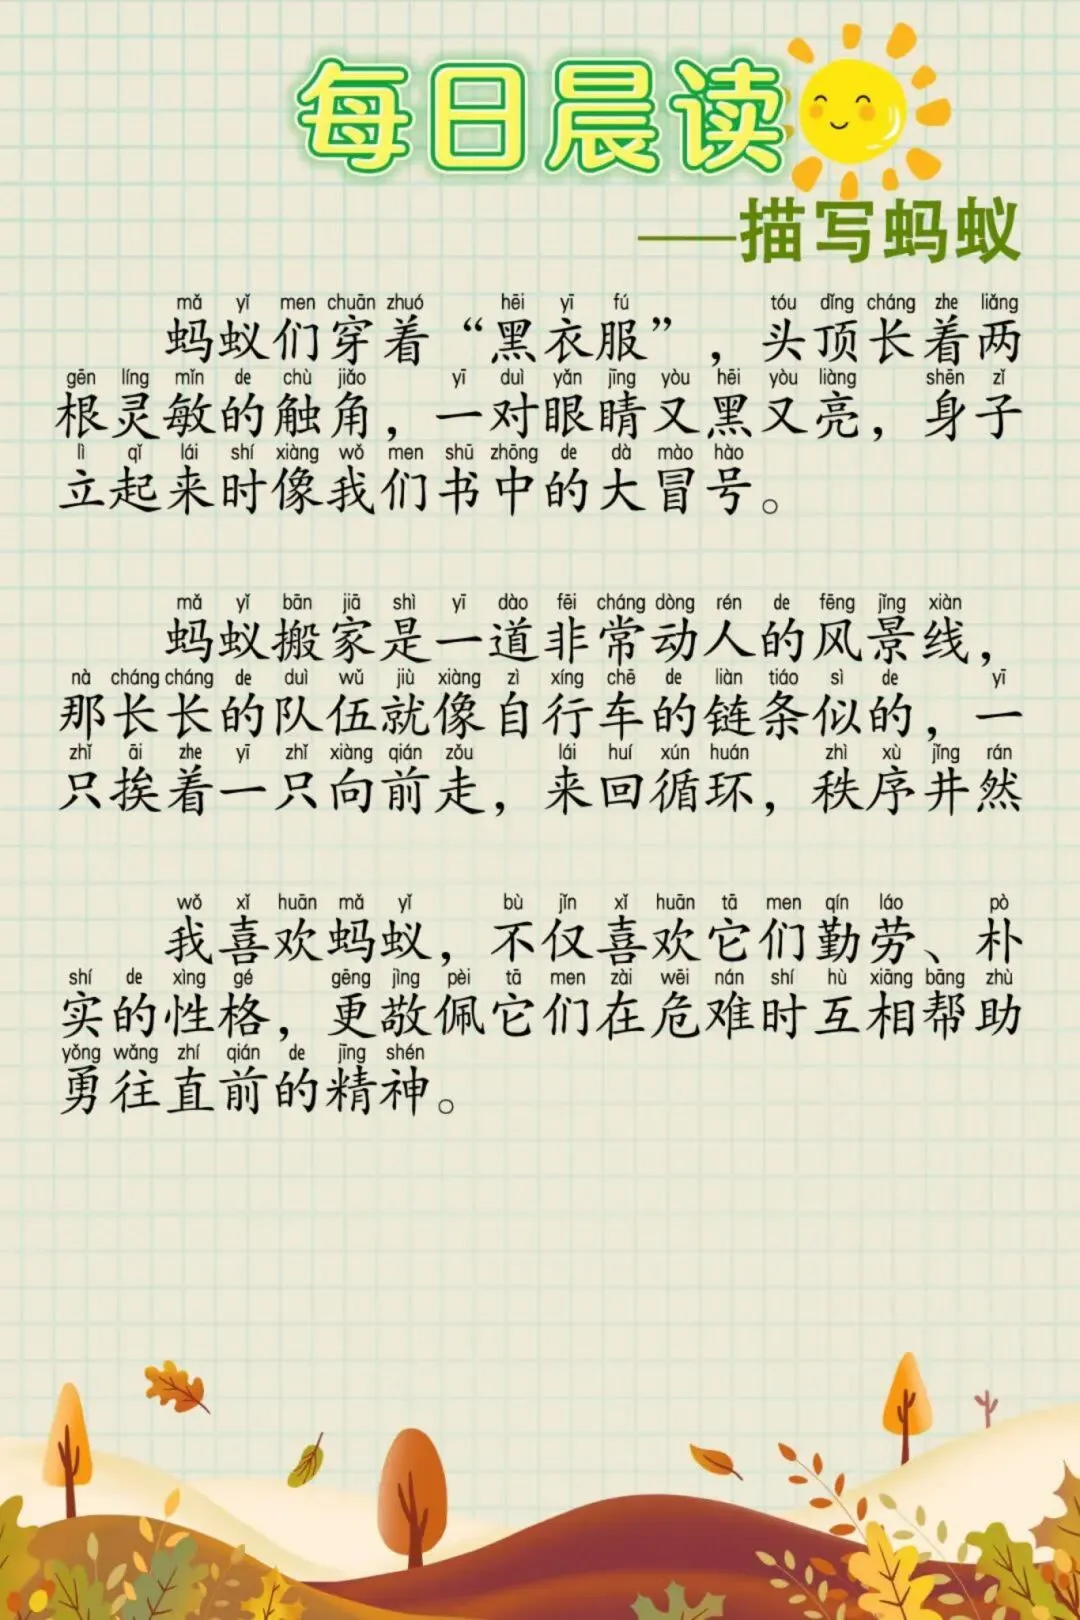 每日晨读
——描写蚂蚁
mǎ yǐ men chuān zhuó hēi yī fú tóu dǐng cháng zhe liǎng
蚂蚁们穿着“黑衣服”，头顶长着两
gēn líng mǐn de chù jiǎo yī duì yǎn jīng yòu hēi yòu liàng shēn zǐ
根灵敏的触角，一对眼睛又黑又亮，身子
lì qǐ lái shí xiàng wǒ men shū zhōng de dà mào hào
立起来时像我们书中的大冒号。
mǎ yǐ bān jiā shì yī dào fēi cháng dòng rén de fēng jǐng xiàn
蚂蚁搬家是一道非常动人的风景线，
nà cháng cháng de duì wǔ jiù xiàng zì xíng chē de liàn tiáo sì de yī
那长长的队伍就像自行车的链条似的，一
zhǐ āi zhe yī zhǐ xiàng qián zǒu lái huí xún huán zhì xù jǐng rán
只挨着一只向前走，来回循环，秩序井然
wǒ xǐ huān mǎ yǐ bù jǐn xǐ huān tā men qín láo pò
我喜欢蚂蚁，不仅喜欢它们勤劳、朴
shí de xìng gé gēng jìng pèi tā men zài wēi nán shí hù xiāng bāng zhù
实的性格，更敬佩它们在危难时互相帮助
yǒng wǎng zhí qián de jīng shén
勇往直前的精神。